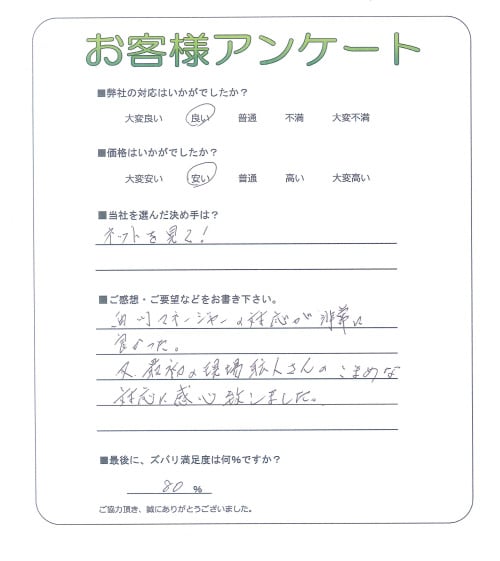 お客様アンケート
■弊社の対応はいかがでしたか？
大変良い 良い 普通 不満 大変不満
■価格はいかがでしたか？
大変安い 安い 普通 高い 大変高い
■当社を選んだ決め手は？
ネットを見て！
■ご感想・ご要望などをお書き下さい。
マネージャーの対応が非常に
良かった。
又、最初の現場 人さんのこまめな
対応に感心致しました。
■最後に、ズバリ満足度は何％ですか？
80 %
ご協力頂き、誠にありがとうございました。